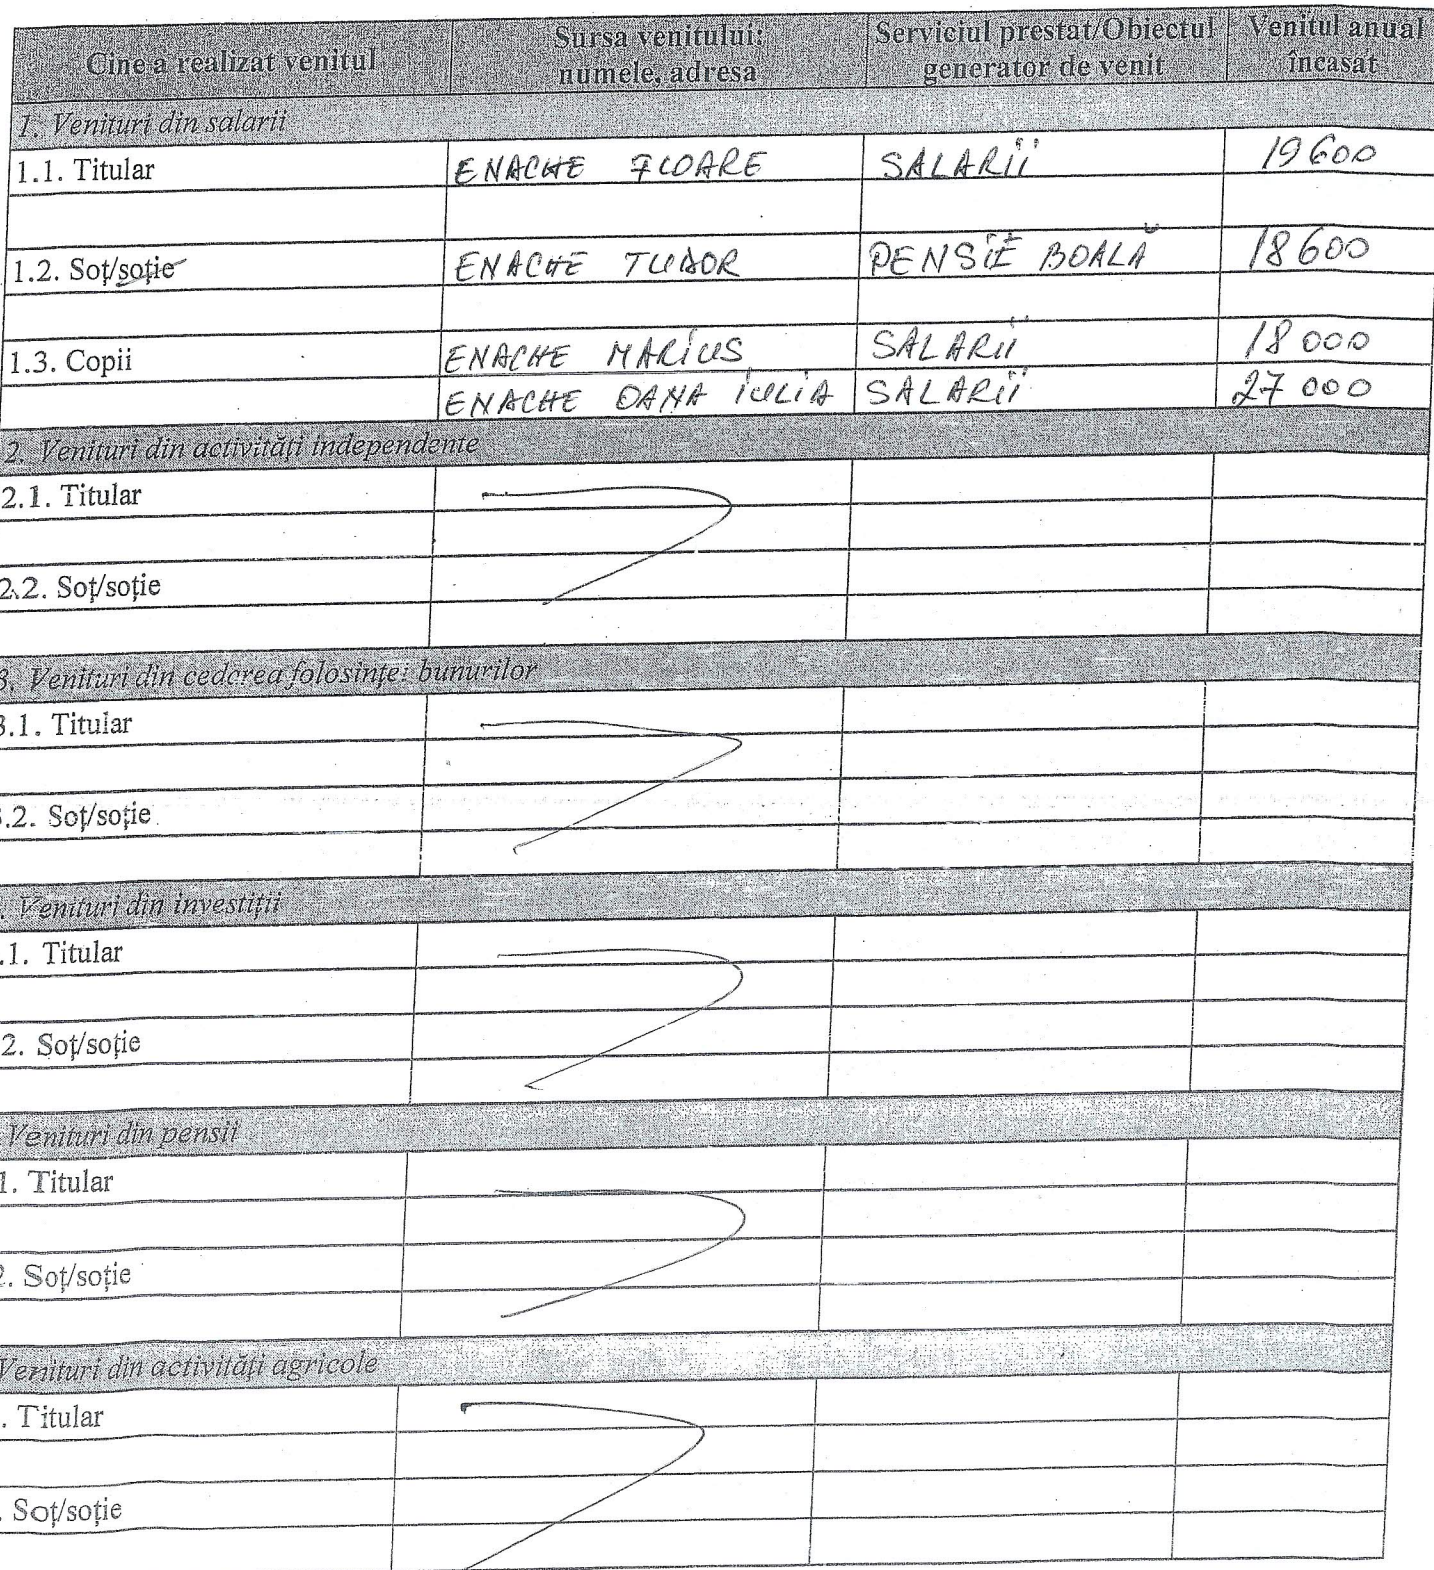 Cine a realizat venitul Sursa venitului: numele, adresa Serviciul prestat/Obiectul generator de venit Venitul anual încasat
1. Venituri din salarii
1.1. Titular ENACHE FLOARE SALARII 19600
1.2. Soţ/soţie ENACHE TUDOR PENSIE BOALĂ 18600
1.3. Copii ENACHE MARIUS SALARII 18 000
ENACHE OANA IULIA SALARII 27 000
2. Venituri din activităţi independente
2.1. Titular
2.2. Soţ/soţie
3. Venituri din cedarea folosinţei bunurilor
3.1. Titular
.2. Soţ/soţie
. Venituri din investiţii
.1. Titular
2. Soţ/soţie
Venituri din pensii
1. Titular
2. Soţ/soţie
Venituri din activităţi agricole
. Titular
. Soţ/soţie